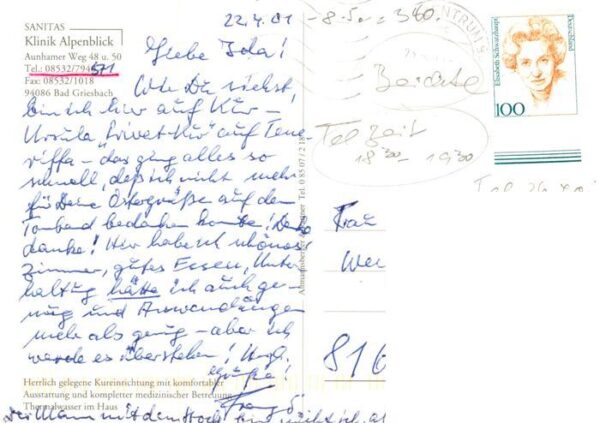 SANITAS
Klinik Alpenblick
Aunhamer Weg 48 u. 50
Tel.: 08532/794571
Fax: 08532/1018
94086 Bad Griesbach
22.4.01 - 8.5.
Liebe Ida!
Wie Du siehst,
bin ich hier auf Kur –
Ursula „Privat-Kur" auf Tene-
riffa – das ging alles so
schnell, daß ich nicht mehr
für Deine Ostergrüße auf dem
Tonband bedanken konnte!
danke! Hier habe ich schönes
Zimmer, gutes Essen, Unter
haltung hätte ich auch ge-
nug und Anwendungen
mehr als genug – aber ich
werde es überstehen!
Grüße!
Herrlich gelegene Kureinrichtung mit komfortabler
Ausstattung und kompletter medizinischer Betreuung
Thermalwasser im Haus
Der Mann mit dem
Tel Zeit
18 30 - 19 30
Deutschland
Elisabeth Schwarzhaupt
100
Frau
816